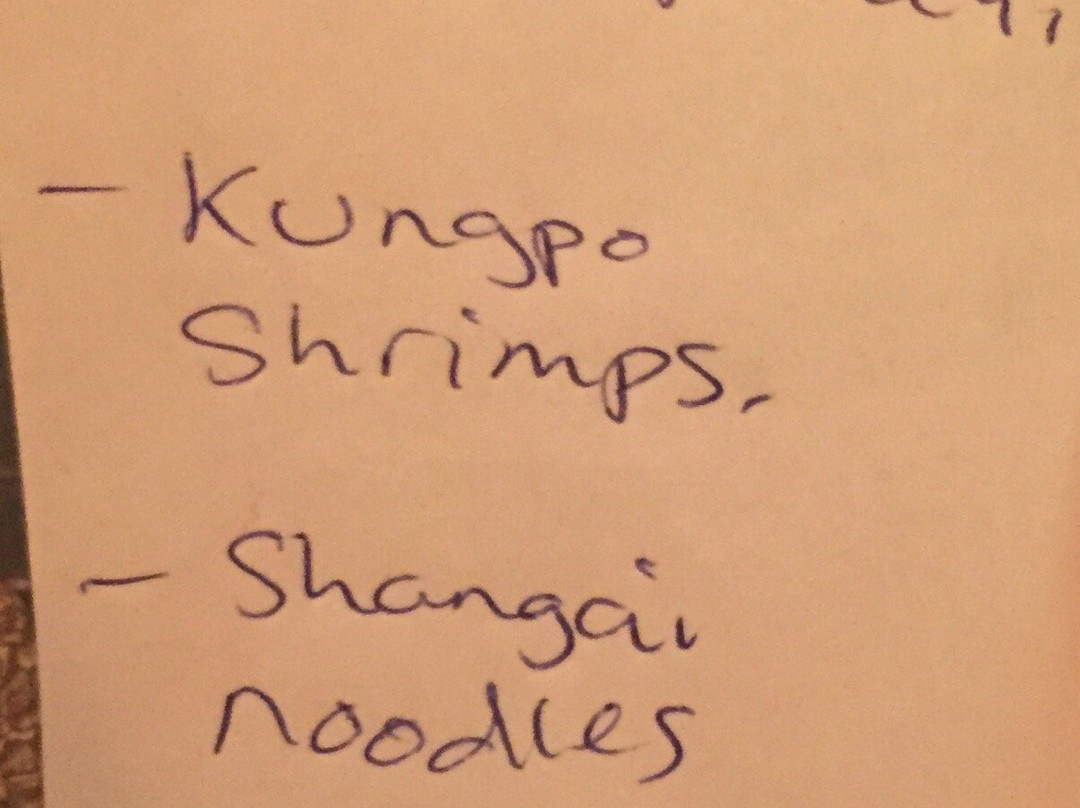 - Kungpo
Shrimps.
- Shangai
noodles